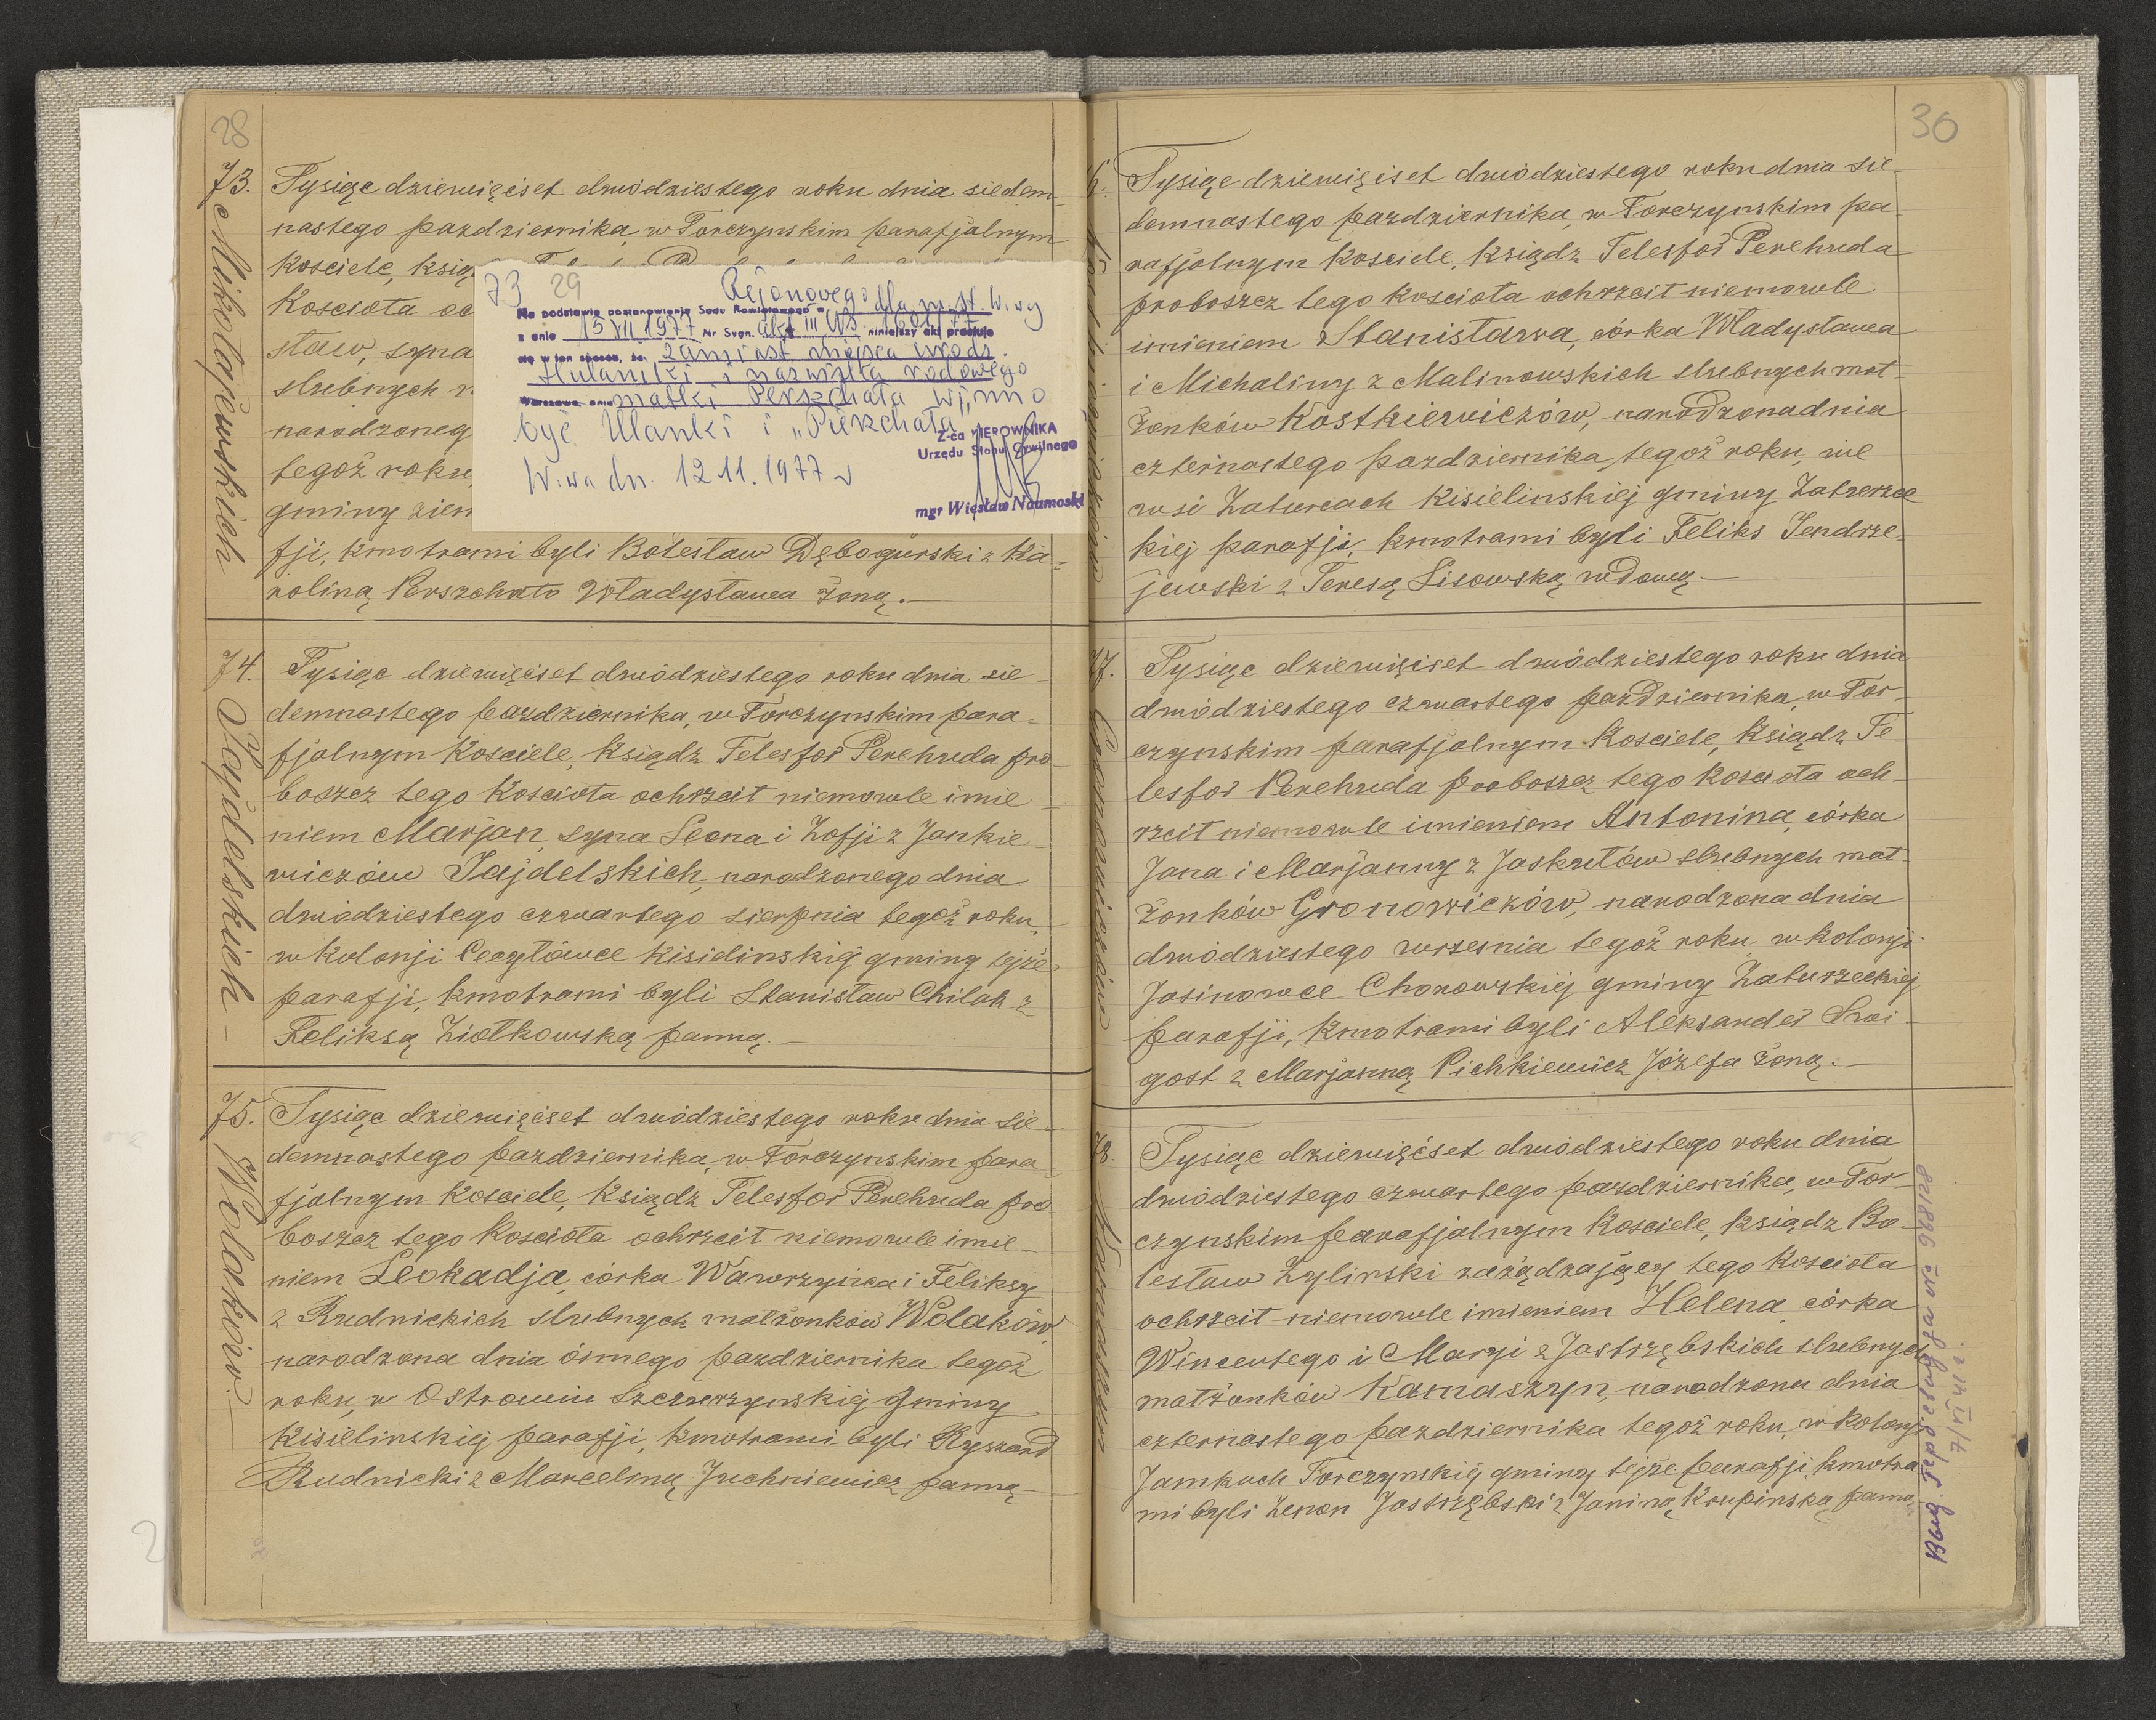 28
73.
Mikołajewskich
Tysiąc dziewięćset dwódziestego roku dnia siedem-
nastego pazdziernika, w Torczynskim parafjalnym
kosciele, ksią
Kosciota oc
staw, syna
slubnych
narodzoneg
tegoż roku,
gminy
fji, kmotrami byli Bolesław Dębogurski z Ka-
roliną Perszchało Władysława żoną.—
73 29
Rejonowego dla m. st. W-wy
Na podstawie postanowienia Sądu Powiatowego w
z dnia 15 VII 1977 Nr Sygn. akt III Ns niniejszy akt prostuje
się w ten sposób, że zamiast miejsca urodz.
Hulaniki i nazwiska rodowego
Warszawa, dnia matki Perszchała winno
być Ulanki i „Pierzchała"
Z-ca KIEROWNIKA
Urzędu Stanu Cywilnego
W-wa dn. 12.11.1977 r
mgr Wiesław Naumoski
74.
Sajdelskich —
Tysiąc dziewięćset dwódziestego roku dnia sie-
demnastego pazdziernika, w Torczynskim para-
fjalnym Kosciele, Ksiądz Telesfor Perehuda pro-
boszcz tego Kosciota ochrzcit niemowle imie-
niem Marjan, syna Leona i Zofji z Jankie-
wiczów Sajdelskich, narodzonego dnia
dwódziestego czwartego sierpnia tegoż roku,
w kolonji Cecylówce Kisielinskiej gminy tejże
parafji, kmotrami byli Stanisław Chilak z
Feliksą Ziołkowską panną.—
75.
Wolaków.—
Tysiąc dziewięćset dwódziestego roku dnia sie-
demnastego pazdziernika, w Torczynskim para-
fjalnym Kosciele, Ksiądz Telesfor Perehuda pro-
boszcz tego Kosciota ochrzcit niemowle imie-
niem Leokadja, córka Wawrzynca i Feliksy
z Rudnickich slubnych małżonków Wolaków,
narodzona dnia ósmego pazdziernika tegoż
roku, w Ostrowiu Szczurzynskiej gminy
Kisielinskiej parafji, kmotrami byli Ryszard
Rudnicki z Marceliną Juchniewicz panną—
30
6.
Tysiąc dziewięćset dwódziestego roku dnia sie-
demnastego pazdziernika, w Torczynskim pa-
rafjalnym Kosciele, Ksiądz Telesfor Perehuda
proboszcz tego Kosciota ochrzcit niemowle
imieniem Stanisława, córka Władysława
i Michaliny z Malinowskich slubnych mał-
żonków Kostkiewiczów, narodzona dnia
czternastego pazdziernika, tegoż roku, we
wsi Zaturcach Kisielinskiej gminy Zaturzec
kiej parafji, kmotrami byli Feliks Jendrze-
jewski z Teresą Lisowską wdową.—
7.
Gronowiczów
Tysiąc dziewięćset dwódziestego roku dnia
dwódziestego czwartego pazdziernika, w Tor-
czynskim parafjalnym Kosciele, Ksiądz Te-
lesfor Perehuda proboszcz tego Kosciota och-
rzcit niemowle imieniem Antonina, córka
Jana i Marjanny z Jaskutów slubnych mał-
żonków Gronowiczów, narodzona dnia
dwódziestego wrzesnia tegoż roku, w kolonji
Jasinowce Chorowskiej gminy Zaturzeckiej
parafji, kmotrami byli Aleksander Swi-
gost z Marjanną Pichkiewicz Józefa żoną.—
8.
Tysiąc dziewięćset dwódziestego roku dnia
dwódziestego czwartego pazdziernika, w Tor-
czynskim parafjalnym Kosciele, ksiądz Bo-
lesław Zylinski zażądzający tego Kosciota
ochrzcit niemowle imieniem Helena, córka
Wincentego i Maryi z Jastrzębskich slubnych
małżonków Kamaszyn, narodzona dnia
czternastego pazdziernika tegoż roku, w kolonji
Jamkach Torczynskiej gminy tejże parafji, kmotra-
mi byli Zenon Jastrzębski z Janiną Krupinską panną